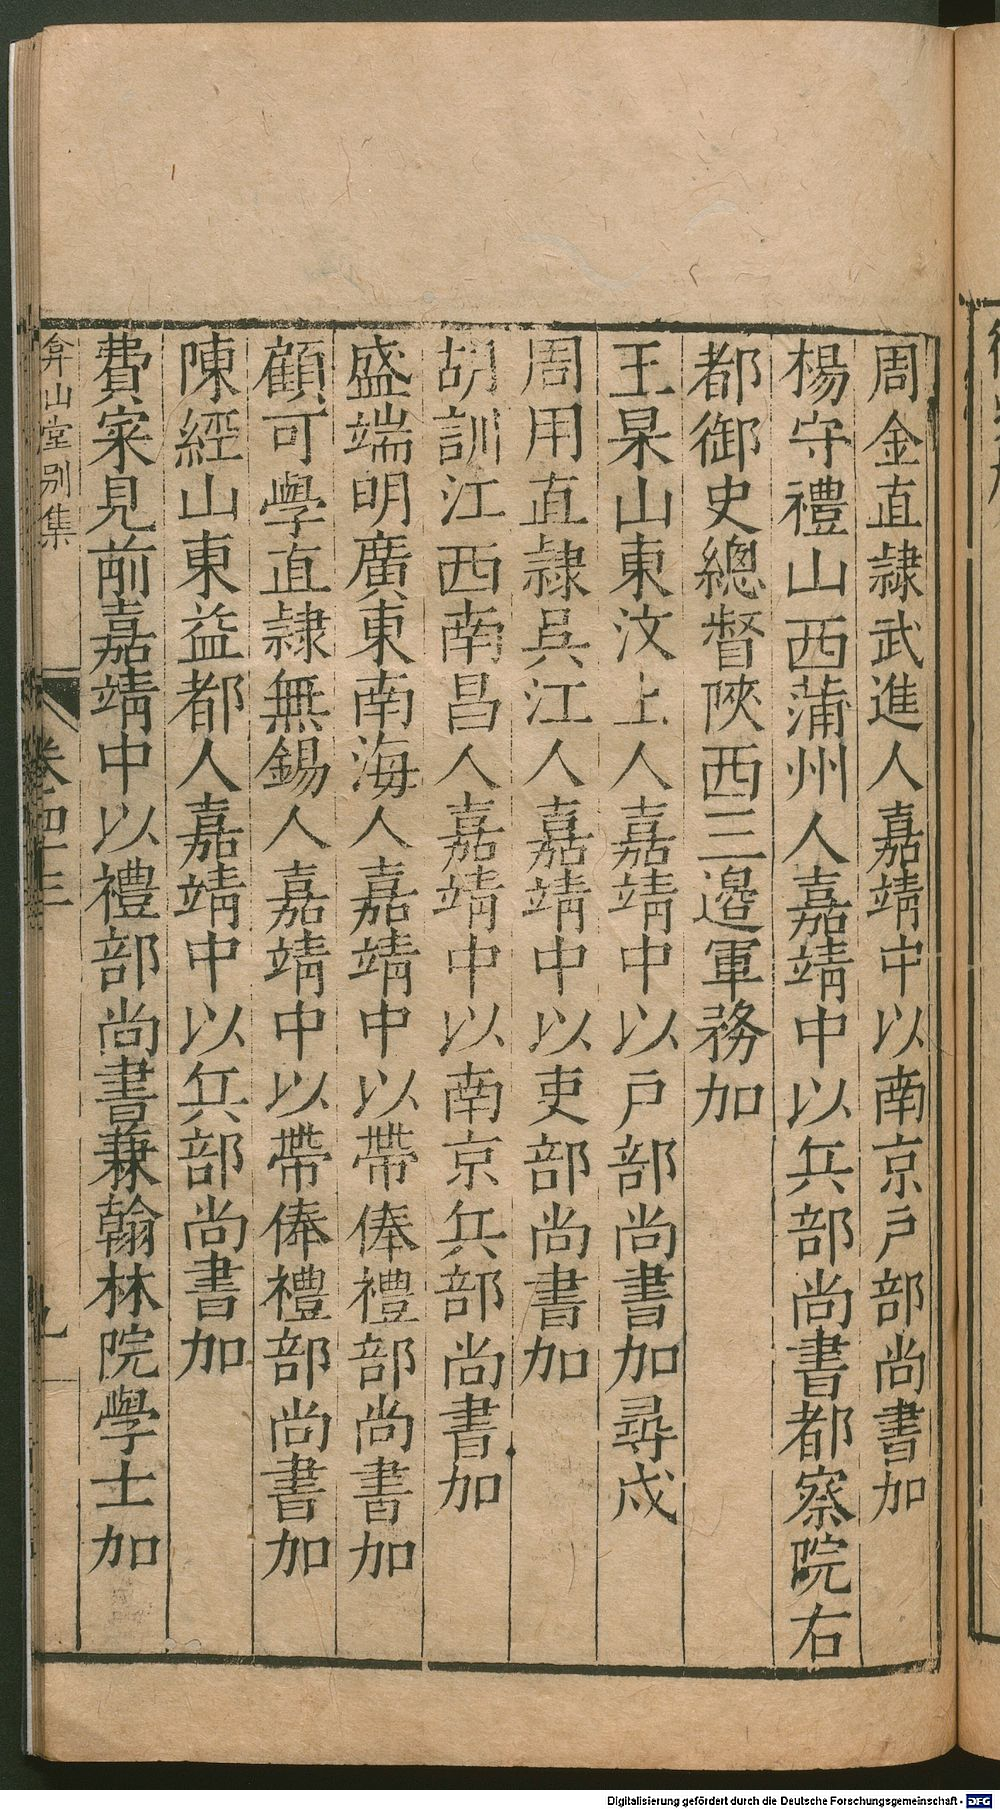 周金直隷武進人嘉靖中以南京戶部尚書加
楊守禮山西蒲州人嘉靖中以兵部尚書都察院右
都御史總督陜西三邉軍務加
王杲山東汶上人嘉靖中以戶部尚書加尋戍
周用直隷吳江人嘉靖中以吏部尚書加
胡訓江西南昌人嘉靖中以南京兵部尚書加
盛端明廣東南海人嘉靖中以帶俸禮部尚書加
顧可學直隷無錫人嘉靖中以帶俸禮部尚書加
陳經山東益都人嘉靖中以兵部尚書加
費寀見前嘉靖中以禮部尚書兼翰林院學士加
弇山堂别集 卷四十三 九
Digitalisierung gefördert durch die Deutsche Forschungsgemeinschaft - DFG